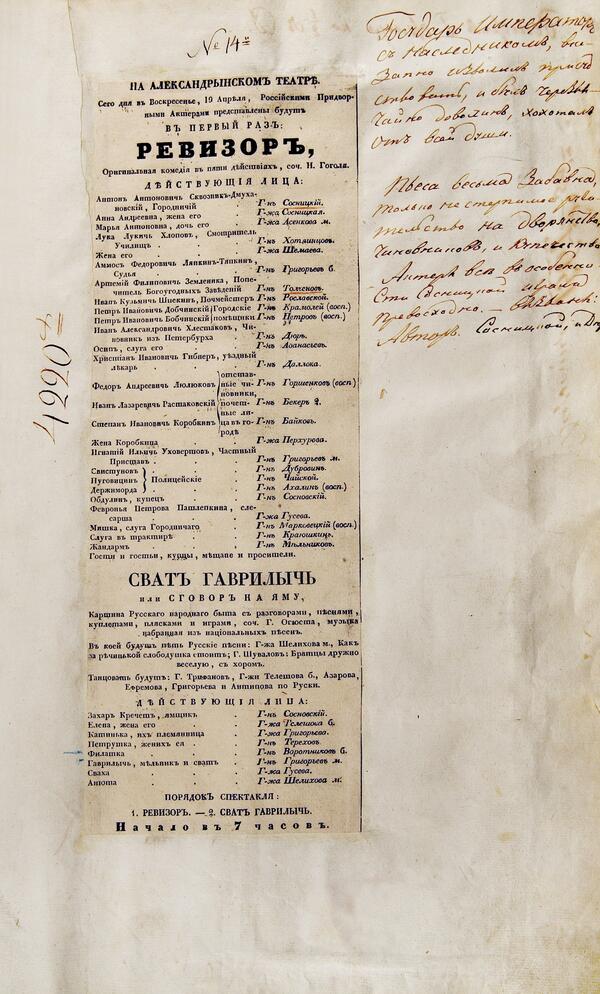 № 14й
НА АЛЕКСАНДРЫНСКОМ ТЕАТРѢ.
Сего дня въ Воскресенье, 19 Апрѣля, Россійскими Придвор-
ными Актерами представлены будутъ
ВЪ ПЕРВЫЙ РАЗЪ:
РЕВИЗОРЪ,
Оригинальная комедія въ пяти дѣйствіяхъ, соч. Н. Гоголя.
ДѢЙСТВУЮЩІЯ ЛИЦА:
Антонъ Антоновичъ Сквозникъ-Дмуха-
новскій, Городничій . Г-нъ Сосницкій.
Анна Андреевна, жена его . Г-жа Сосницкая.
Марья Антоновна, дочь его . Г-жа Асенкова м.
Лука Лукичь Хлоповъ, Смотритель
Училищъ . . . Г-нъ Хотяинцовъ.
Жена его . . . Г-жа Шемаева.
Аммосъ Федоровичь Ляпкинъ-Тяпкинъ,
Судья . . . Г-нъ Григорьевъ б.
Артемій Филиповичь Земленика, Попе-
читель Богоугодныхъ Заведеній Г-нъ Толченовъ.
Иванъ Кузьмичь Шпекинъ, Почмейстеръ Г-нъ Рославской.
Петръ Ивановичь Добчинскій Городскіе Г-нъ Крамолей (восп.)
Петръ Ивановичь Бобчинскій помѣщики Г-нъ Петровъ (восп.)
Иванъ Александровичь Хлестаковъ, Чи-
новникъ изъ Петербурха . Г-нъ Дюръ.
Осипъ, слуга его . . Г-нъ Афанасьевъ.
Христіанъ Ивановичь Гибнеръ, уѣздный
лѣкарь . . . Г-нъ Даллока.
Федоръ Андреевичь Люлюковъ отстав- ные чи- новники, Г-нъ Горшенковъ (восп)
Иванъ Лазаревичь Растаковскій почет- Г-нъ Бекеръ 2.
Степанъ Ивановичь Коробкинъ ные ли- ца въ го- родѣ Г-нъ Байковъ.
Жена Коробкина . . Г-жа Перхурова.
Игнатій Ильичь Уховертовъ, Частный
Приставъ . . . Г-нъ Григорьевъ м.
Свистуновъ . Г-нъ Дубровинъ.
Пуговицинъ Полицейскіе . Г-нъ Чайской.
Держиморда . Г-нъ Ахалинъ (восп.)
Обдулинъ, купецъ . . Г-нъ Сосновскій.
Февронья Петрова Пашлепкина, сле-
сарша . . . Г-жа Гусева.
Мишка, слуга Городничаго . Г-нъ Марковецкій (восп.)
Слуга въ трактирѣ . . Г-нъ Краюшкинъ.
Жандармъ . . . Г-нъ Мѣльниковъ.
Гости и гостьи, купцы, мѣщане и просители.
СВАТЪ ГАВРИЛЫЧЬ
или СГОВОРЪ НА ЯМУ,
Картина Русскаго народнаго быта съ разговорами, пѣснями,
куплетами, плясками и играми, соч. Г. Огюста, музыка
набранная изъ національныхъ пѣсенъ.
Въ коей будутъ пѣть Русскіе пѣсни: Г-жа Шелихова м., Какъ
за рѣчинькой слободушка стоитъ; Г. Шуваловъ: Братцы дружно
веселую, съ хоромъ.
Танцовать будутъ: Г. Трифановъ, Г-жи Телешова б., Азарова,
Ефремова, Григорьева и Антипова по Руски.
ДѢЙСТВУЮЩІЯ ЛИЦА:
Захаръ Кречетъ, ямщикъ . Г-нъ Сосновскій.
Елена, жена его . . Г-жа Телешова б.
Катинька, ихъ племянница . Г-жа Григорьева.
Петрушка, женихъ ея . . Г-нъ Тереховъ.
Филатка . . . Г-нъ Воротниковъ б.
Гаврилычь, мѣльникъ и сватъ . Г-нъ Григорьевъ м.
Сваха . . . Г-жа Гусева.
Анюта . . . Г-жа Шелихова м.
ПОРЯДОКЪ СПЕКТАКЛЯ:
1. РЕВИЗОРЪ. — 2. СВАТЪ ГАВРИЛЫЧЬ.
Начало въ 7 часовъ.
4220
Государь Императоръ
съ Наследникомъ, вне-
запно изволилъ присуд
ствовать, и былъ черезвы-
чайно доволинъ, хохоталъ
отъ всей души.
Пьеса весьма забавна,
только нестерпимое руга
тельство на дворянство,
чиновниковъ, и купечество
Актеры все въ особенно
сти Сосницкой играли
превосходно. — вызваны:
Авторъ, Сосницкой, и Дюръ